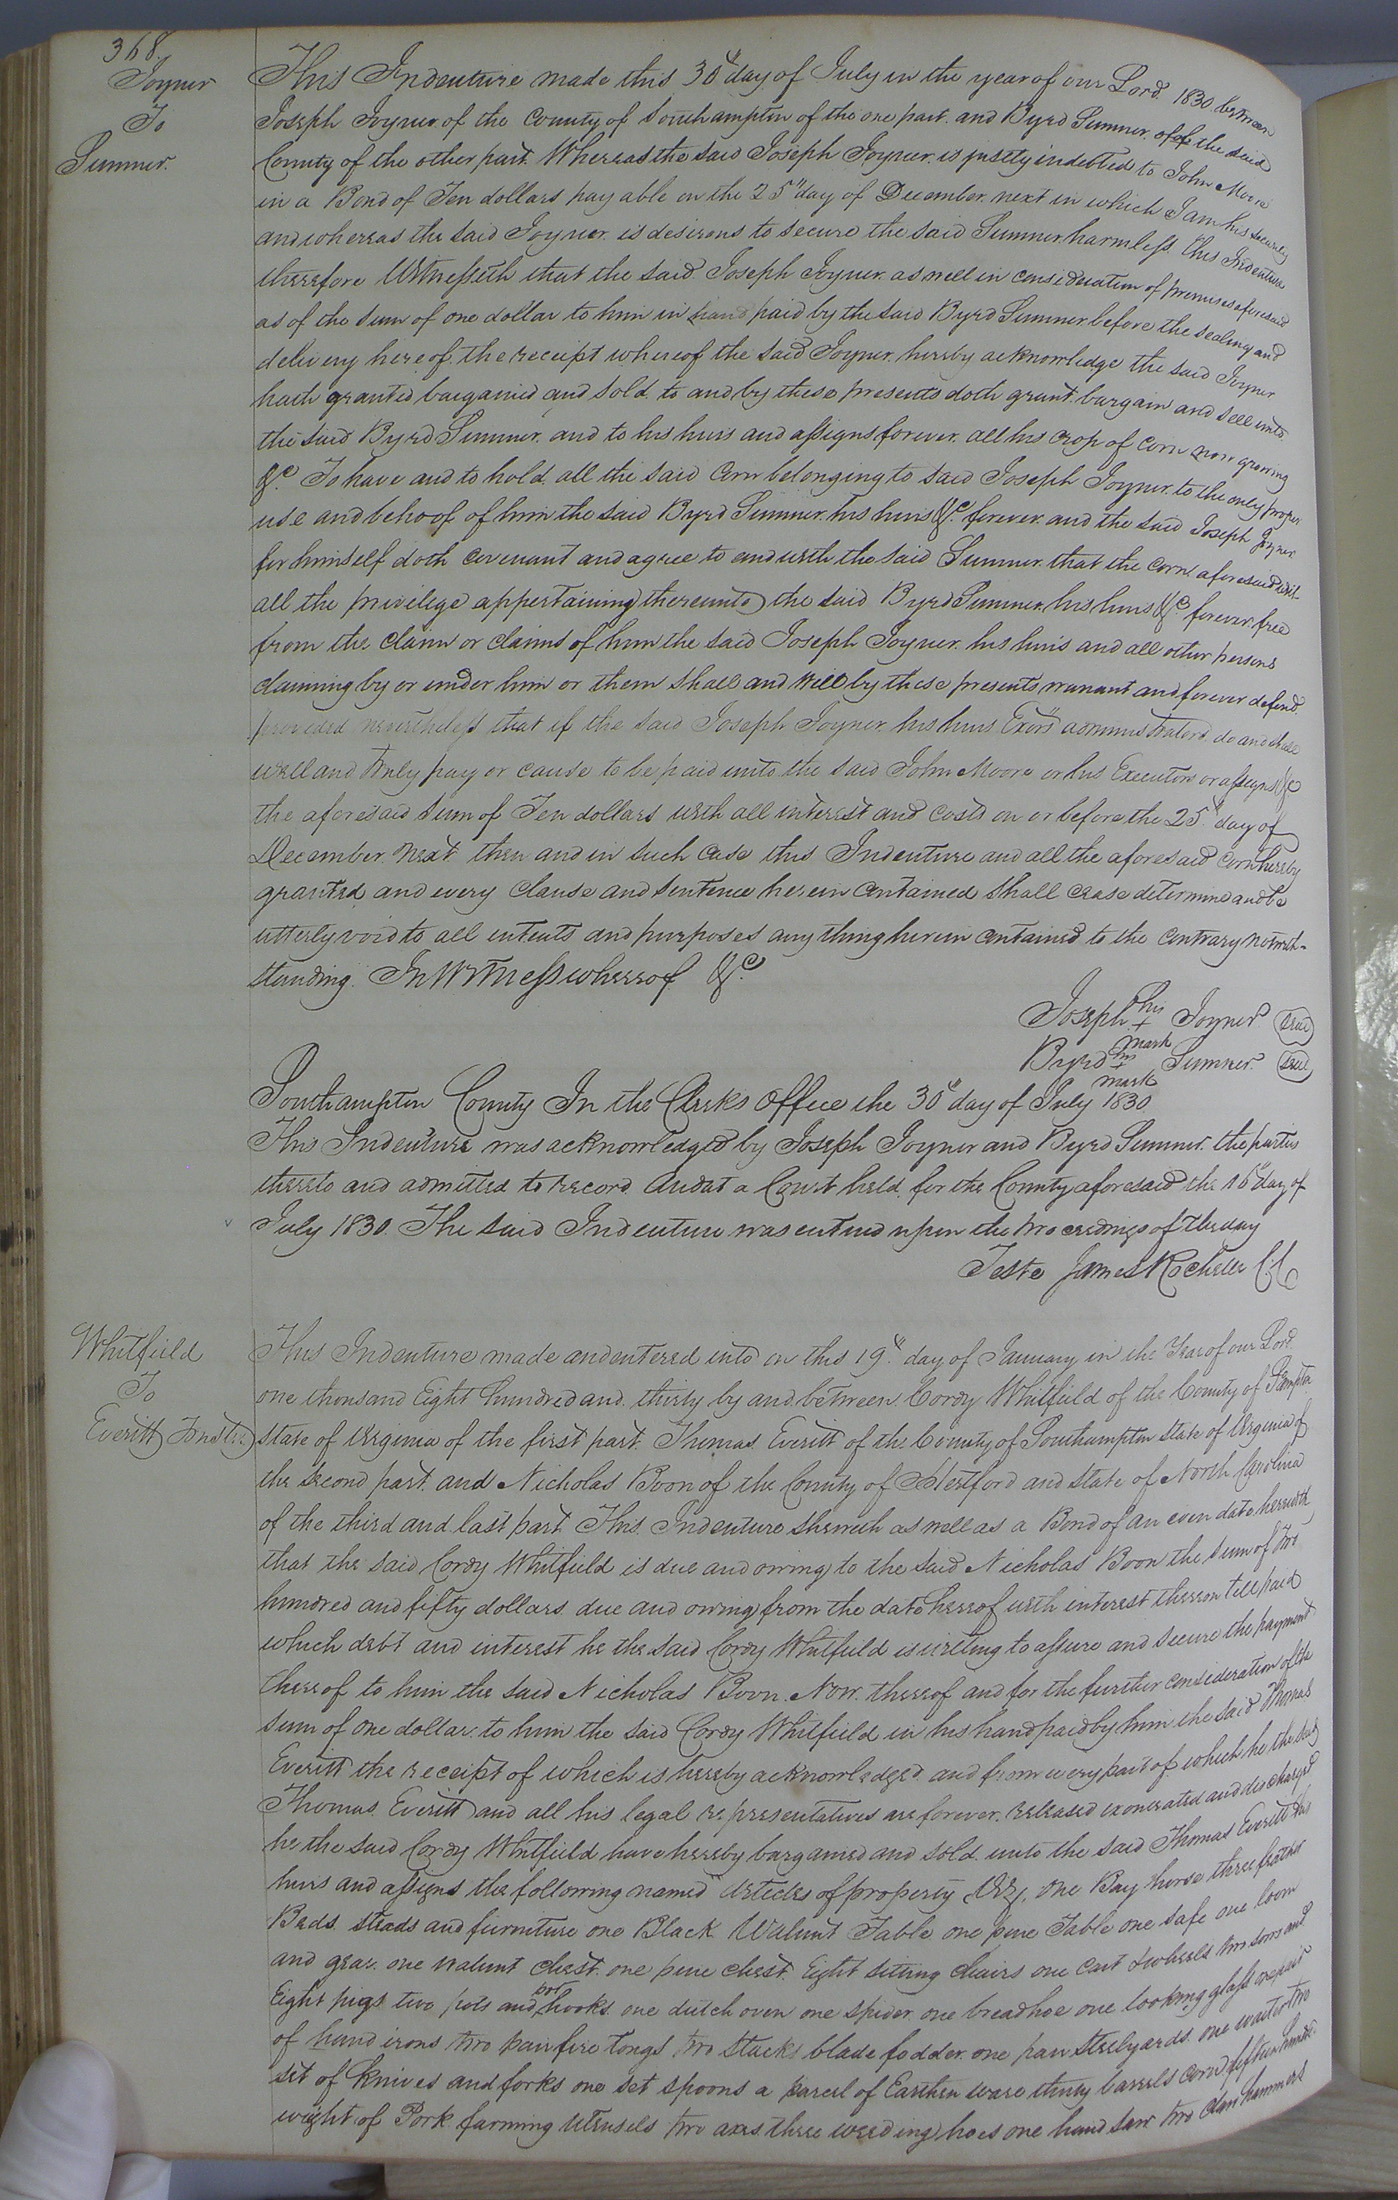 368
Joyner
To
Sumner.
This Indenture made this 30th day of July in the year of our Lord 1830 between
Joseph Joyner of the County of Southampton of the one part and Byrd Sumner of the said
County of the other part. Whereas the said Joseph Joyner is justly indebted to John Moore
in a Bond of Ten dollars payable on the 25th day of December next in which I am his security
and whereas the said Joyner is desirous to secure the said Sumner harmless this Indenture
therefore Witnesseth that the said Joseph Joyner as well in consideration of premises aforesaid
as of the sum of one dollar to him in hand paid by the said Byrd Sumner before the sealing and
delivery hereof the receipt whereof the said Joyner hereby acknowledge the said Joyner
hath granted bargained and sold to and by these presents doth grant bargain and sell unto
the said Byrd Sumner and to his heirs and assigns forever all his crop of corn now growing
&c. To have and to hold all the said Corn belonging to said Joseph Joyner to the only proper
use and behoof of him the said Byrd Sumner his heirs &c forever and the said Joseph Joyner
for himself doth covenant and agree to and with the said Sumner that the corn aforesaid with
all the privilege appertaining thereunto the said Byrd Sumner his heirs &c forever free
from the claim or claims of him the said Joseph Joyner his heirs and all other persons
claiming by or under him or them shall and will by these presents warrant and forever defend.
provided nevertheless that if the said Joseph Joyner his heirs Exors administrators do and shall
well and truly pay or cause to be paid unto the said John Moore or his Executors or assigns &c
the aforesaid sum of Ten dollars with all interest and costs on or before the 25th day of
December next then and in such case this Indenture and all the aforesaid corn hereby
granted and every Clause and sentence herein contained shall cease determine and be
utterly void to all intents and purposes any thing herein contained to the contrary notwith-
standing. In Witness whereof &c.
Joseph his + mark Joyner seal
Byrd his + mark Sumner seal
Southampton County In the Clerks Office the 30th day of July 1830
This Indenture was acknowledged by Joseph Joyner and Byrd Sumner the parties
thereto and admitted to record And at a Court held for the County aforesaid the 16th day of
July 1830. The said Indenture was entered upon the proceedings of the day
Teste James Rochelle CC
Whitfield
To
Everitt Trustee
This Indenture made and entered into on this 19th day of January in the Year of our Lord
one thousand Eight hundred and thirty by and between Cordy Whitfield of the County of Sampton
State of Virginia of the first part, Thomas Everitt of the County of Southampton State of Virginia of
the second part and Nicholas Boon of the County of Hertford and State of North Carolina
of the third and last part This Indenture sheweth as well as a Bond of an even date herewith
that the said Cordy Whitfield is due and owing to the said Nicholas Boon the sum of two
hundred and fifty dollars due and owing from the date hereof with interest thereon till paid
which debt and interest he the said Cordy Whitfield is willing to assure and secure the payment
thereof to him the said Nicholas Boon. Now thereof and for the further consideration of the
sum of one dollar to him the said Cordy Whitfield in his hand paid by him the said Thomas
Everitt the receipt of which is hereby acknowledged and from every part of which he the said
Thomas Everitt and all his legal representatives are forever released exonerated and discharged
he the said Cordy Whitfield have hereby bargained and sold unto the said Thomas Everitt his
heirs and assigns the following named articles of property Viz, One Bay horse three feather
Beds steads and furniture one Black Walnut Table one pine Table one safe one loom
and gear one walnut chest one pine chest Eight sitting chairs one cart & wheels two sows and
Eight pigs two pots and pot hooks one dutch oven one spider one bread hoe one looking glass one pair
of hand irons two pair fire tongs two stacks blade fodder one pair steelyards one waiter two
set of knives and forks one set spoons a parcel of Earthen ware thirty barrels corn fifteen hundred
weight of Pork farming utensils two axes three weeding hoes one hand saw two claw hammers